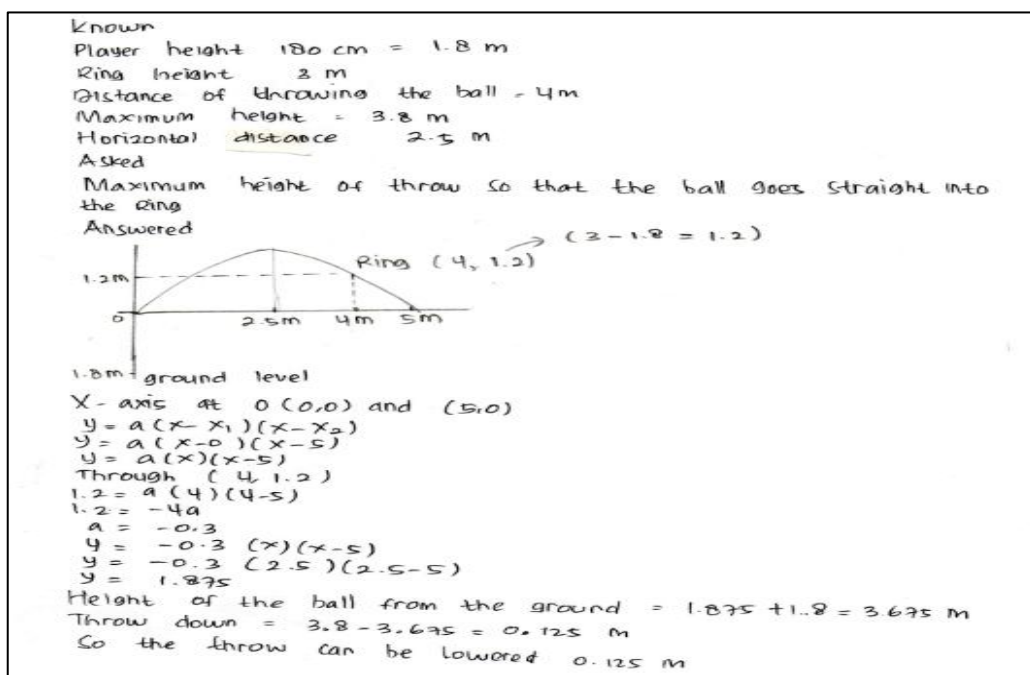 Known
Player height 180 cm = 1.8 m
Ring height 3 m
Distance of throwing the ball = 4m
Maximum height = 3.8 m
Horizontal distance 2.5 m
Asked
Maximum height of throw so that the ball goes straight into
the Ring
Answered
(3 - 1.8 = 1.2)
Ring (4, 1.2)
1.2m
0 2.5m 4m 5m
1.8m ground level
X-axis at 0 (0,0) and (5,0)
y = a(x - x₁)(x - x₂)
y = a(x-0)(x-5)
y = a(x)(x-5)
Through (4, 1.2)
1.2 = a(4)(4-5)
1.2 = -4a
a = -0.3
y = -0.3 (x)(x-5)
y = -0.3 (2.5)(2.5-5)
y = 1.875
Height of the ball from the ground = 1.875 + 1..8 = 3.675 m
Throw down = 3.8 - 3.675 = 0.125 m
So the throw can be lowered 0.125 m